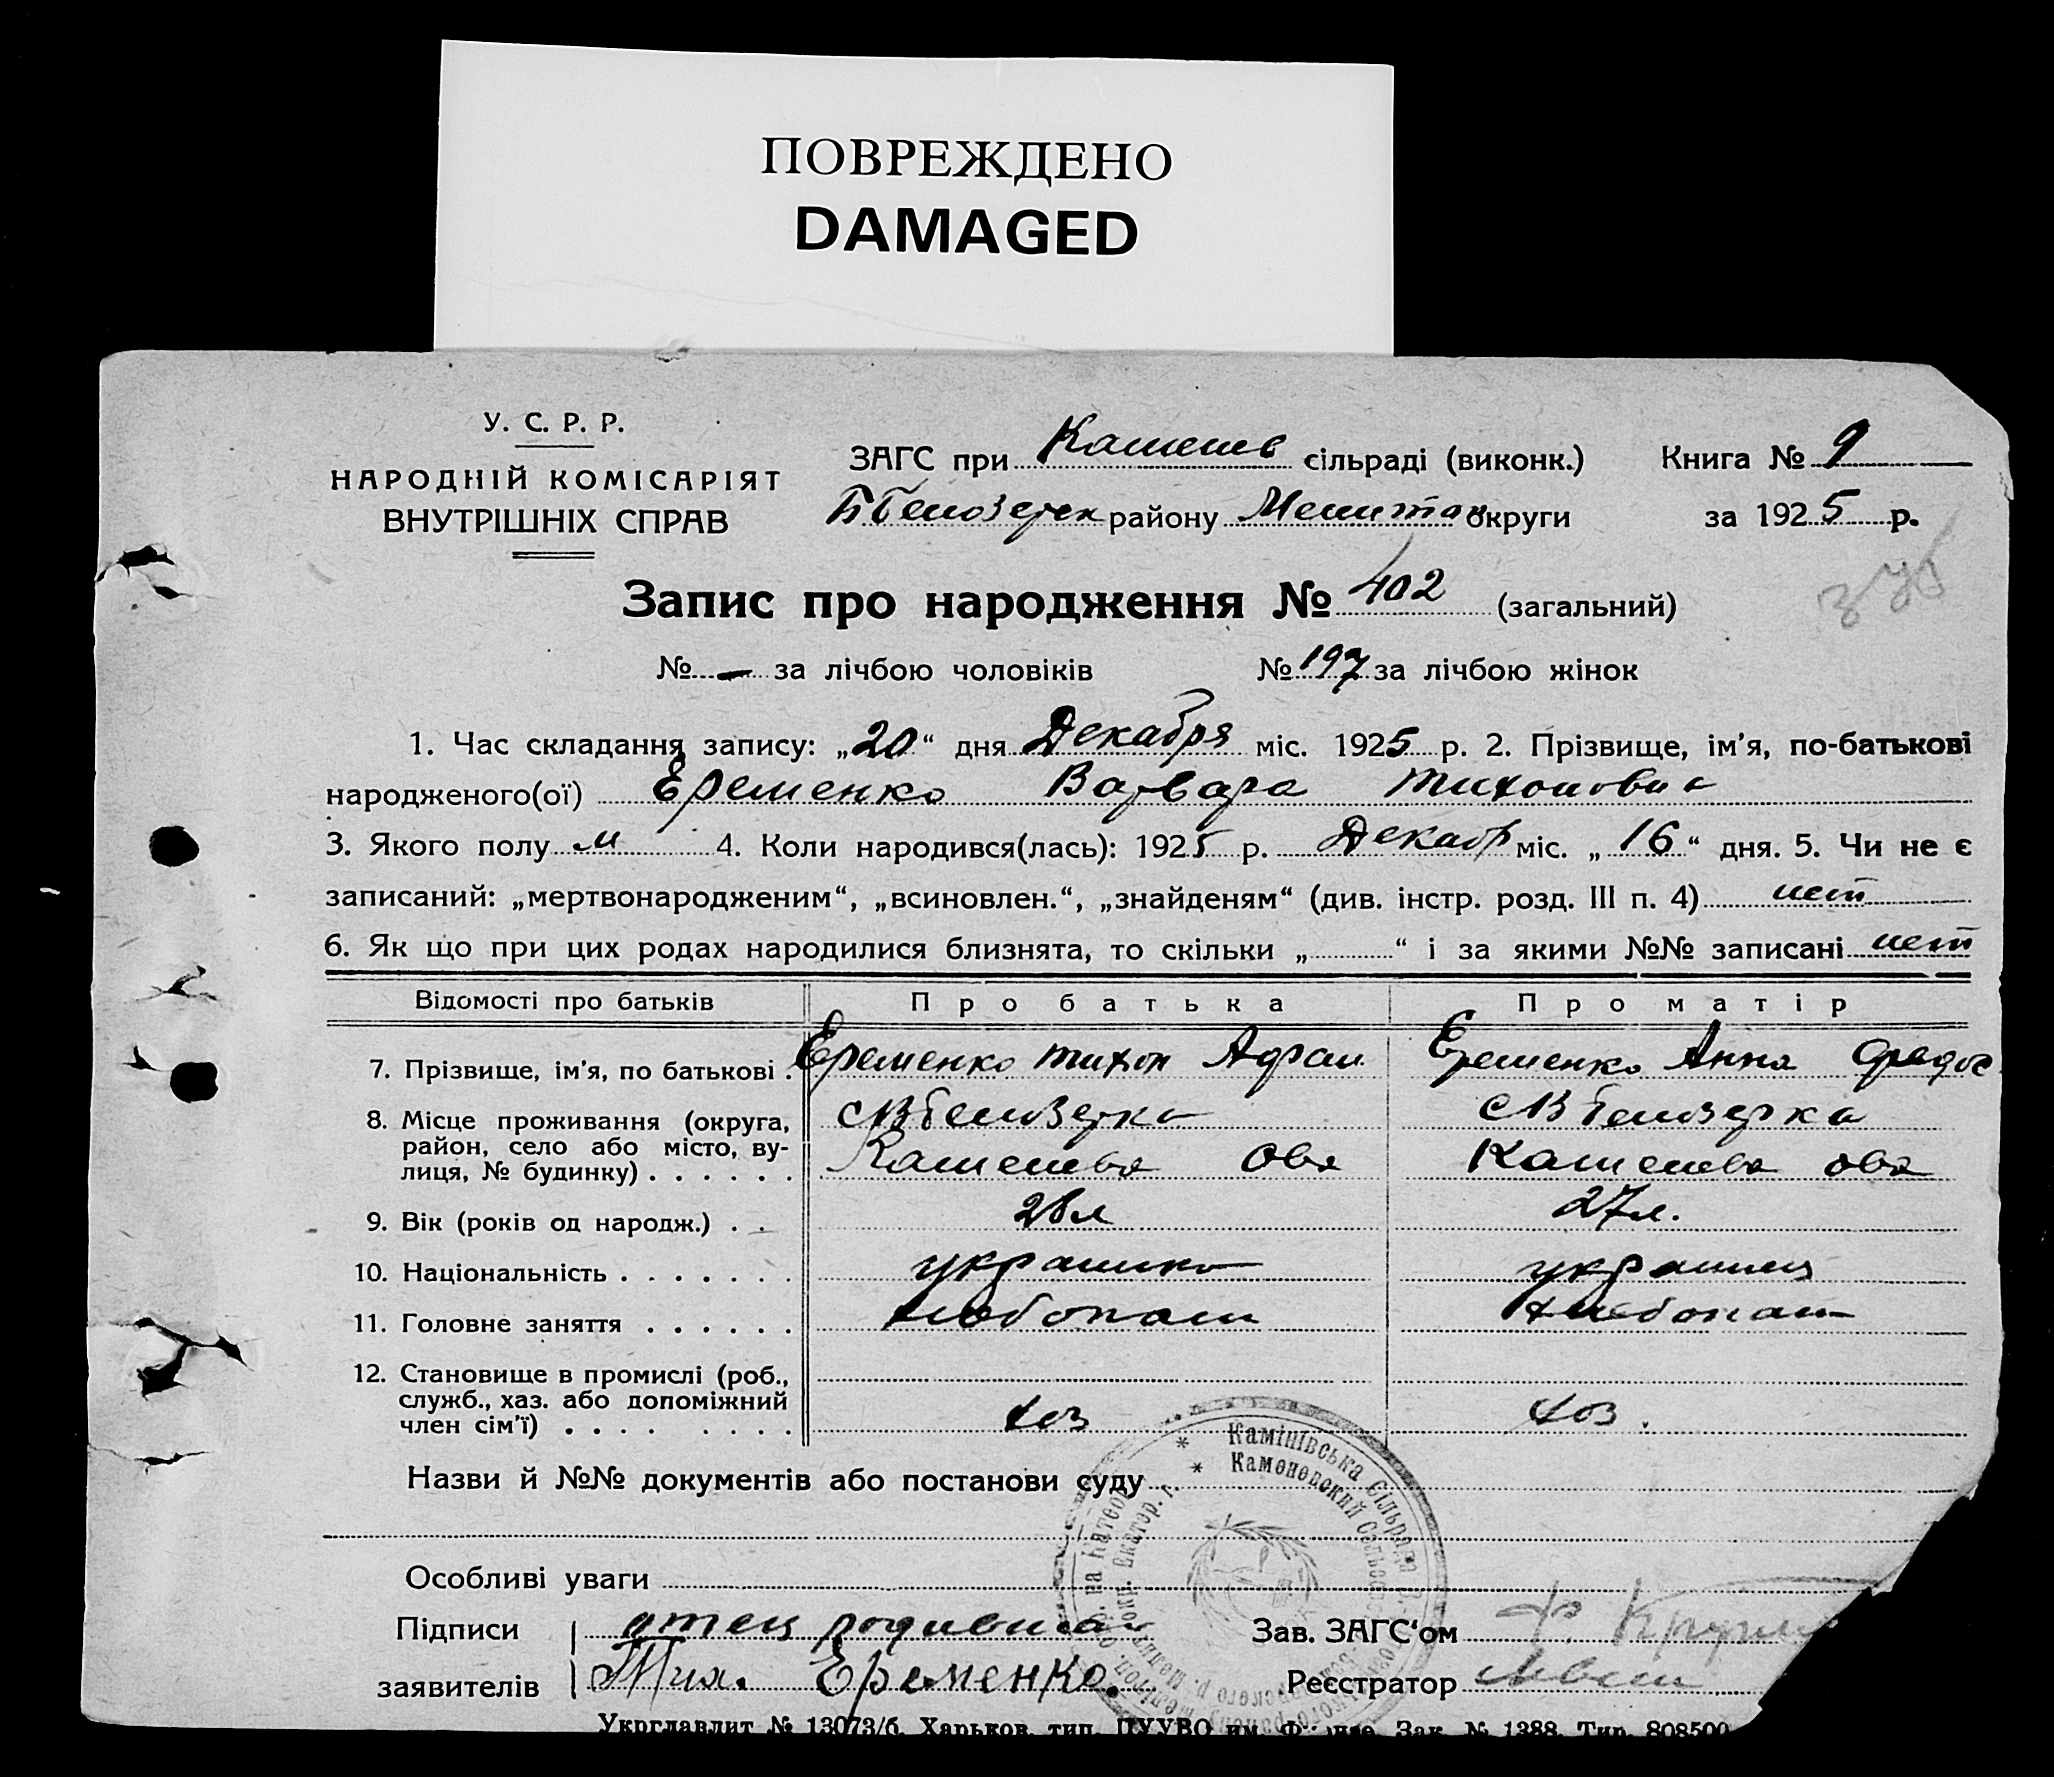 ПОВРЕЖДЕНО
DAMAGED
У. С. Р. Р.
НАРОДНІЙ КОМІСАРІЯТ
ВНУТРІШНІХ СПРАВ
ЗАГС при Каменев сільраді (виконк.) Книга № 9
району округи за 1925 р.
Запис про народження № 402 (загальний)
№ — за лічбою чоловіків № 197 за лічбою жінок
1. Час складання запису: „20“ дня Декабря міс. 1925 р. 2. Прізвище, ім’я, по-батькові
народженого(ої) Еременко Варвара Тихоновна
3. Якого полу 4. Коли народився(лась): 1925 р. Декабр міс. „16“ дня. 5. Чи не є
записаний: „мертвонародженим“, „всиновлен.“, „знайденям“ (див. інстр. розд. III п. 4) нет
6. Як що при цих родах народилися близнята, то скільки „ “ і за якими №№ записані нет
Відомості про батьків Про батька Про матір
7. Прізвище, ім’я, по батькові . Еременко Тихон Афан Еременко Анна Федос
8. Місце проживання (округа,
район, село або місто, ву-
лиця, № будинку) . . . . . .
с В Белозерка с В Белозерка
Каменева Каменева
9. Вік (років од народж.) . . 28 л 27 л.
10. Національність . . . . . . . украинц
11. Головне заняття . . . . . . хлебопаш хлебопаш
12. Становище в промислі (роб.,
служб., хаз. або допоміжний
член сім’ї) . . . . . . . .
хоз хоз.
Назви й №№ документів або постанови суду
Камінівська Сільрада
Каменевский Сельсовет
Особливі уваги
Підписи отец
заявителів Тих. Еременко.
Зав. ЗАГС‘ом
Реєстратор
Укрглавлит № 13073/б. Харьков, тип. ПУУВО им. Фрунзе. Зак. № 1388. Тир. 808500